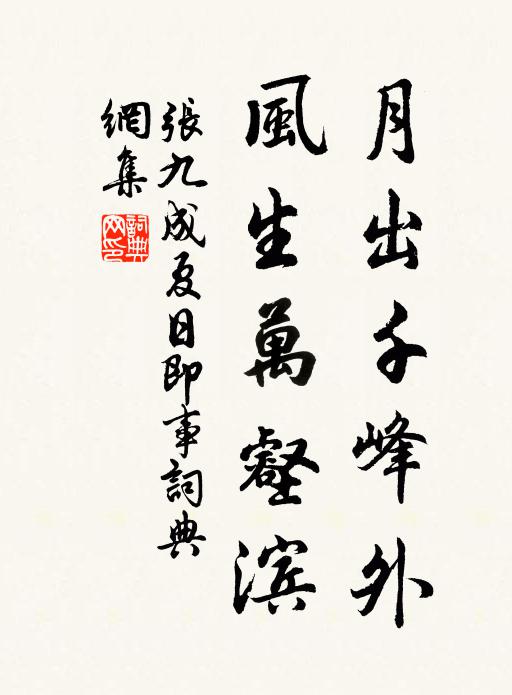 月出千峰外
風生萬壑濱
張九成夏日即事詞典
網集
詞典
网印